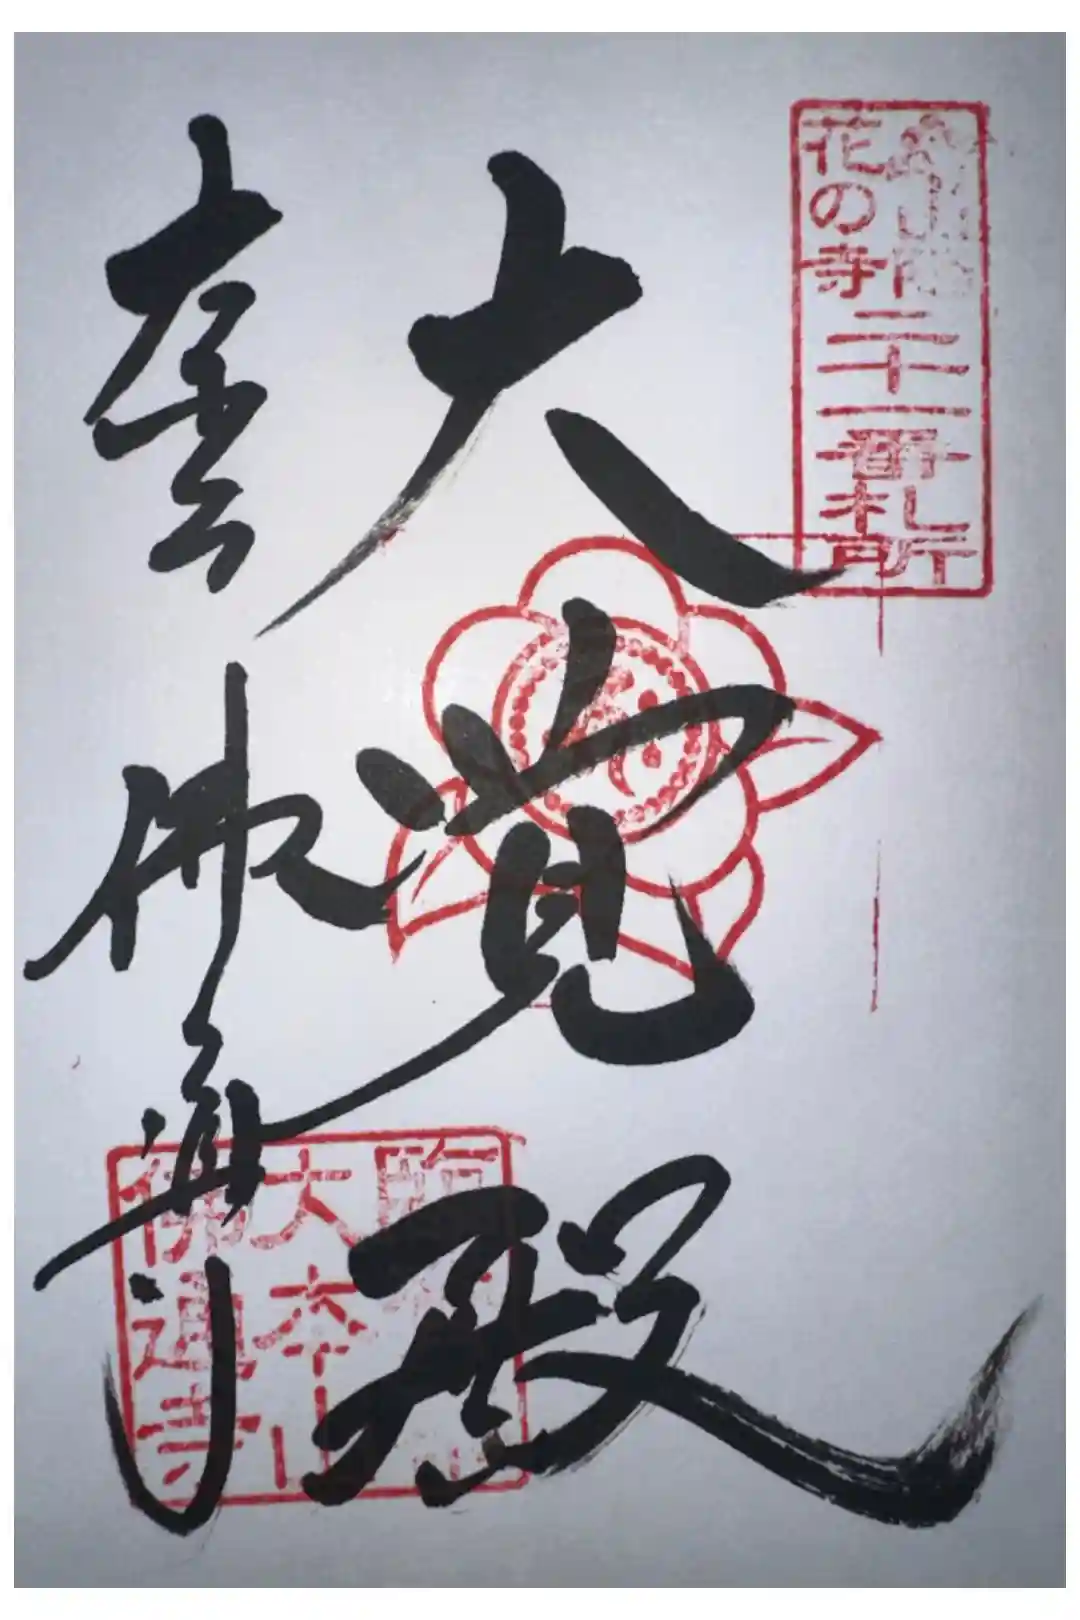 山陽
花の寺
二十一番札所
大覚殿
佛通寺
臨済宗
大本山
佛通寺